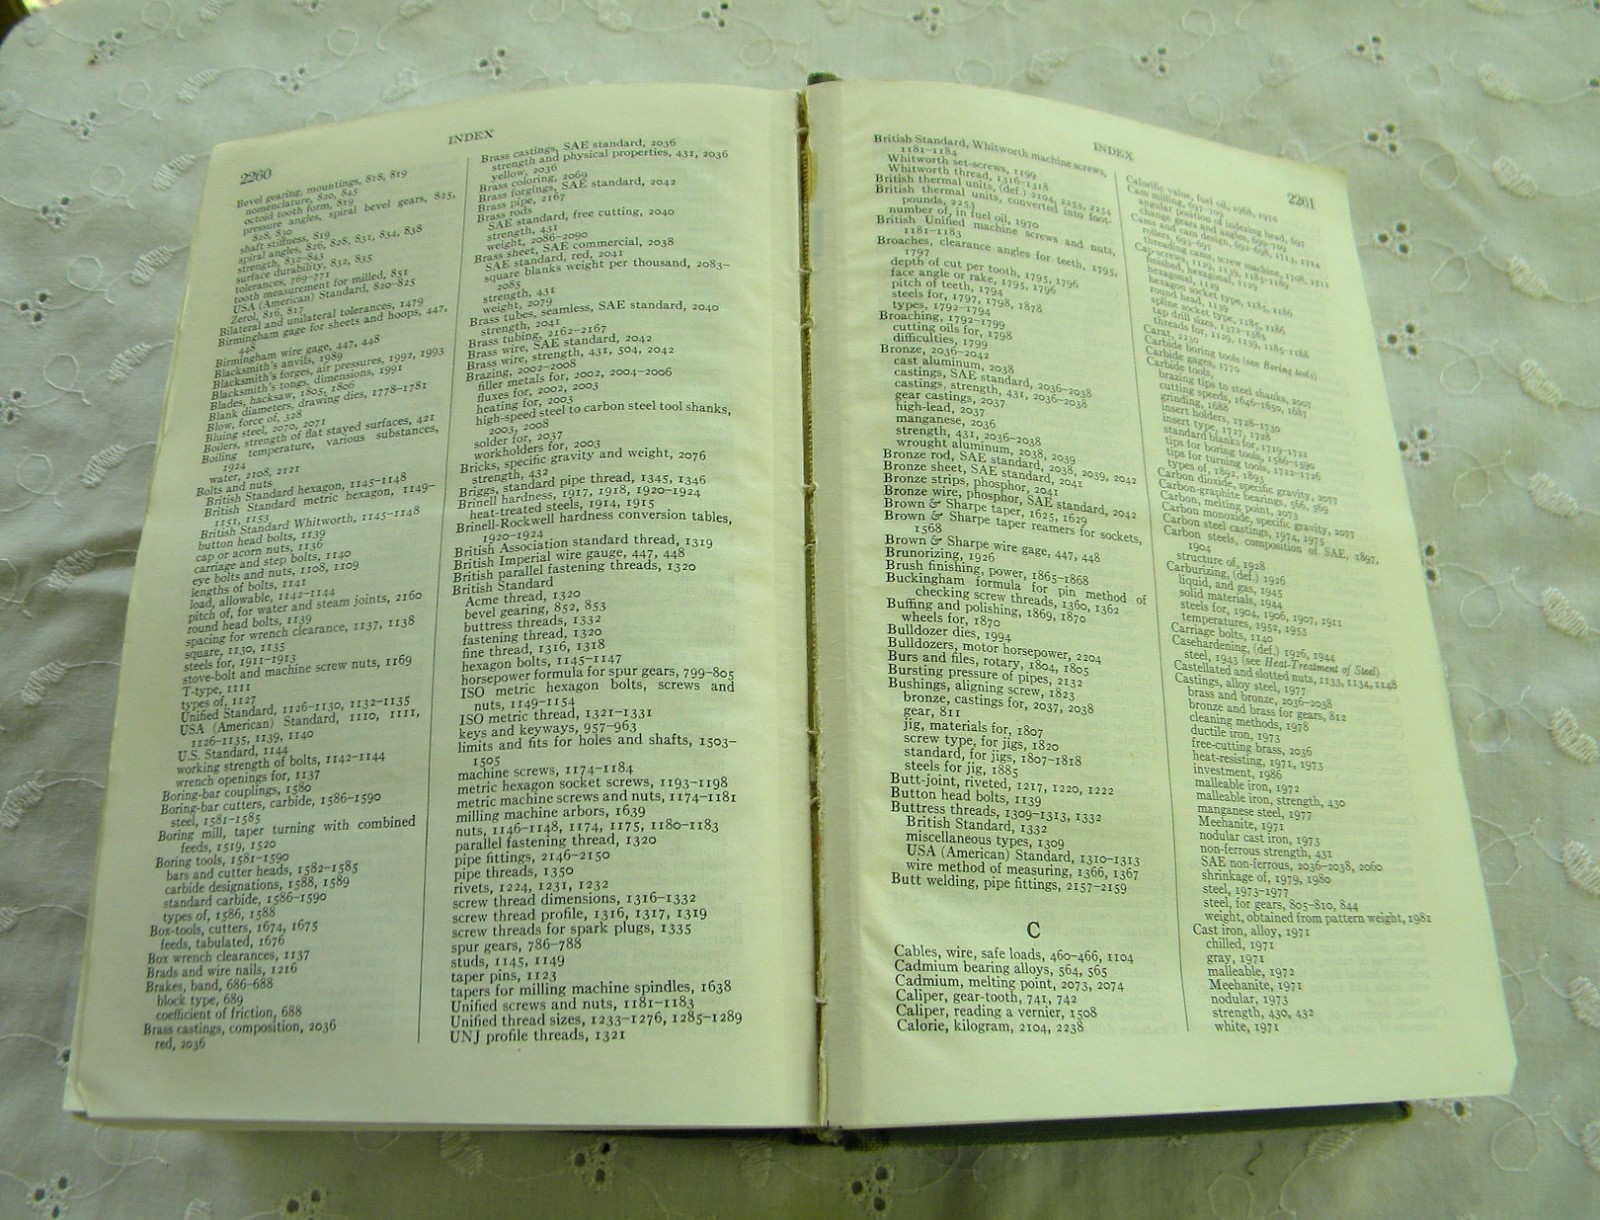 2260
INDEX
Bevel gearing, mountings, 818, 819
nomenclature, 820, 845
octoid tooth form, 819
pressure angles, spiral bevel gears, 825,
828, 830
shaft stiffness, 819
spiral angles, 826, 828, 831, 834, 838
strength, 832-843
surface durability, 832, 835
tolerances, 769-771
tooth measurement for milled, 851
USA (American) Standard, 820-825
Zerol, 816, 817
Bilateral and unilateral tolerances, 1479
Birmingham gage for sheets and hoops, 447,
448
Birmingham wire gage, 447, 448
Blacksmith's anvils, 1989
Blacksmith's forges, air pressures, 1992, 1993
Blacksmith's tongs, dimensions, 1991
Blades, hacksaw, 1805, 1806
Blank diameters, drawing dies, 1778-1781
Blow, force of, 328
Bluing steel, 2070, 2071
Boilers, strength of flat stayed surfaces, 421
Boiling temperature, various substances,
1924
water, 2108, 2121
Bolts and nuts
British Standard hexagon, 1145-1148
British Standard metric hexagon, 1149-
1151, 1153
British Standard Whitworth, 1145-1148
button head bolts, 1139
cap or acorn nuts, 1136
carriage and step bolts, 1140
eye bolts and nuts, 1108, 1109
lengths of bolts, 1141
load, allowable, 1142-1144
pitch of, for water and steam joints, 2160
round head bolts, 1139
spacing for wrench clearance, 1137, 1138
square, 1130, 1135
steels for, 1911-1913
stove-bolt and machine screw nuts, 1169
T-type, 1111
types of, 1127
Unified Standard, 1126-1130, 1132-1135
USA (American) Standard, 1110, 1111,
1126-1135, 1139, 1140
U.S. Standard, 1144
working strength of bolts, 1142-1144
wrench openings for, 1137
Boring-bar couplings, 1580
Boring-bar cutters, carbide, 1586-1590
steel, 1581-1585
Boring mill, taper turning with combined
feeds, 1519, 1520
Boring tools, 1581-1590
bars and cutter heads, 1582-1585
carbide designations, 1588, 1589
standard carbide, 1586-1590
types of, 1586, 1588
Box-tools, cutters, 1674, 1675
feeds, tabulated, 1676
Box wrench clearances, 1137
Brads and wire nails, 1216
Brakes, band, 686-688
block type, 689
coefficient of friction, 688
Brass castings, composition, 2036
red, 2036
Brass castings, SAE standard, 2036
strength and physical properties, 431, 2036
yellow, 2036
Brass coloring, 2069
Brass forgings, SAE standard, 2042
Brass pipe, 2167
Brass rods
SAE standard, free cutting, 2040
strength, 431
weight, 2086-2090
Brass sheet, SAE commercial, 2038
SAE standard, red, 2041
square blanks weight per thousand, 2083-
2085
strength, 431
weight, 2079
Brass tubes, seamless, SAE standard, 2040
strength, 2041
Brass tubing, 2162-2167
Brass wire, SAE standard, 2042
Brass wire, strength, 431, 504, 2042
Brazing, 2002-2008
filler metals for, 2002, 2004-2006
fluxes for, 2002, 2003
heating for, 2003
high-speed steel to carbon steel tool shanks,
2003, 2008
solder for, 2037
workholders for, 2003
Bricks, specific gravity and weight, 2076
strength, 432
Briggs, standard pipe thread, 1345, 1346
Brinell hardness, 1917, 1918, 1920-1924
heat-treated steels, 1914, 1915
Brinell-Rockwell hardness conversion tables,
1920-1924
British Association standard thread, 1319
British Imperial wire gauge, 447, 448
British parallel fastening threads, 1320
British Standard
Acme thread, 1320
bevel gearing, 852, 853
buttress threads, 1332
fastening thread, 1320
fine thread, 1316, 1318
hexagon bolts, 1145-1147
horsepower formula for spur gears, 799-805
ISO metric hexagon bolts, screws and
nuts, 1149-1154
ISO metric thread, 1321-1331
keys and keyways, 957-963
limits and fits for holes and shafts, 1503-
1505
machine screws, 1174-1184
metric hexagon socket screws, 1193-1198
metric machine screws and nuts, 1174-1181
milling machine arbors, 1639
nuts, 1146-1148, 1174, 1175, 1180-1183
parallel fastening thread, 1320
pipe fittings, 2146-2150
pipe threads, 1350
rivets, 1224, 1231, 1232
screw thread dimensions, 1316-1332
screw thread profile, 1316, 1317, 1319
screw threads for spark plugs, 1335
spur gears, 786-788
studs, 1145, 1149
taper pins, 1123
tapers for milling machine spindles, 1638
Unified screws and nuts, 1181-1183
Unified thread sizes, 1233-1276, 1285-1289
UNJ profile threads, 1321
INDEX
2261
British Standard, Whitworth machine screws,
1181-1184
Whitworth set-screws, 1199
Whitworth thread, 1316-1318
British thermal units, (def.) 2104, 2253, 2254
British thermal units, converted into foot-
pounds, 2253
number of, in fuel oil, 1970
British Unified machine screws and nuts,
1181-1183
Broaches, clearance angles for teeth, 1795,
1797
depth of cut per tooth, 1795, 1796
face angle or rake, 1795, 1796
pitch of teeth, 1794
steels for, 1797, 1798, 1878
types, 1792-1794
Broaching, 1792-1799
cutting oils for, 1798
difficulties, 1799
Bronze, 2036-2042
cast aluminum, 2038
castings, SAE standard, 2036-2038
castings, strength, 431, 2036-2038
gear castings, 2037
high-lead, 2037
manganese, 2036
strength, 431, 2036-2038
wrought aluminum, 2038, 2039
Bronze rod, SAE standard, 2038, 2039, 2042
Bronze sheet, SAE standard, 2041
Bronze strips, phosphor, 2041
Bronze wire, phosphor, SAE standard, 2042
Brown & Sharpe taper, 1625, 1629
Brown & Sharpe taper reamers for sockets,
1568
Brown & Sharpe wire gage, 447, 448
Brunorizing, 1926
Brush finishing, power, 1865-1868
Buckingham formula for pin method of
checking screw threads, 1360, 1362
Buffing and polishing, 1869, 1870
wheels for, 1870
Bulldozer dies, 1994
Bulldozers, motor horsepower, 2204
Burs and files, rotary, 1804, 1805
Bursting pressure of pipes, 2132
Bushings, aligning screw, 1823
bronze, castings for, 2037, 2038
gear, 811
jig, materials for, 1807
screw type, for jigs, 1820
standard, for jigs, 1807-1818
steels for jig, 1885
Butt-joint, riveted, 1217, 1220, 1222
Button head bolts, 1139
Buttress threads, 1309-1313, 1332
British Standard, 1332
miscellaneous types, 1309
USA (American) Standard, 1310-1313
wire method of measuring, 1366, 1367
Butt welding, pipe fittings, 2157-2159
C
Cables, wire, safe loads, 460-466, 1104
Cadmium bearing alloys, 564, 565
Cadmium, melting point, 2073, 2074
Caliper, gear-tooth, 741, 742
Caliper, reading a vernier, 1508
Calorie, kilogram, 2104, 2238
Calorific value, fuel oil, 1968, 1970
Cam milling, 697-709
angular position of indexing head, 697
change gears and angles, 699-709
Cams and cam design, 692-698, 1713, 1714
rollers, 693-697
threading cams, screw machine, 1708, 1711
Cap-screws, 1129, 1139, 1185-1189
finished, hexagonal, 1129
hexagonal, 1129
hexagon socket type, 1185, 1186
round head, 1139
spline socket type, 1185, 1186
tap drill sizes, 1372-1383
threads for, 1129, 1139, 1185-1188
Carat, 2230
Carbide boring tools (see Boring tools)
Carbide gages, 1770
Carbide tools,
brazing tips to steel shanks, 2007
cutting speeds, 1646-1650, 1687
grinding, 1688
insert holders, 1728-1730
insert type, 1727, 1728
standard blanks for, 1719-1721
tips for boring tools, 1586-1590
tips for turning tools, 1722-1726
types of, 1892, 1893
Carbon dioxide, specific gravity, 2077
Carbon-graphite bearings, 566, 569
Carbon, melting point, 2073
Carbon monoxide, specific gravity, 2077
Carbon steel castings, 1974, 1975
Carbon steels, composition of SAE, 1897,
1904
structure of, 1928
Carburizing, (def.) 1926
liquid, and gas, 1945
solid materials, 1944
steels for, 1904, 1906, 1907, 1911
temperatures, 1952, 1953
Carriage bolts, 1140
Casehardening, (def.) 1926, 1944
steel, 1943 (see Heat-Treatment of Steel)
Castellated and slotted nuts, 1133, 1134, 1148
Castings, alloy steel, 1977
brass and bronze, 2036-2038
bronze and brass for gears, 812
cleaning methods, 1978
ductile iron, 1973
free-cutting brass, 2036
heat-resisting, 1971, 1973
investment, 1986
malleable iron, 1972
malleable iron, strength, 430
manganese steel, 1977
Meehanite, 1971
nodular cast iron, 1973
non-ferrous strength, 431
SAE non-ferrous, 2036-2038, 2060
shrinkage of, 1979, 1980
steel, 1973-1977
steel, for gears, 805-810, 844
weight, obtained from pattern weight, 1981
Cast iron, alloy, 1971
chilled, 1971
gray, 1971
malleable, 1972
Meehanite, 1971
nodular, 1973
strength, 430, 432
white, 1971